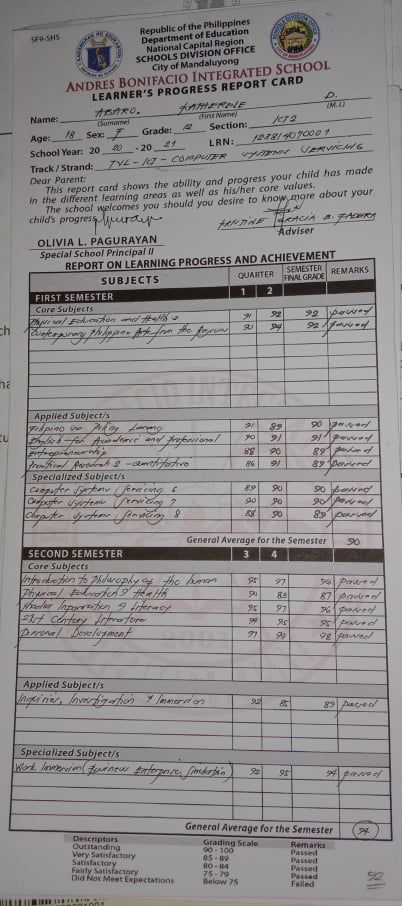 SF9-SHS
Republic of the Philippines
Department of Education
National Capital Region
SCHOOLS DIVISION OFFICE
City of Mandaluyong
ANDRES BONIFACIO INTEGRATED SCHOOL
LEARNER'S PROGRESS REPORT CARD
Name: ABARO, KATHERINE D.
(Surname) (First Name) (M.I.)
Age: 18 Sex: F Grade: 12 Section: ICT2
School Year: 20 20 - 20 21 LRN:
Track / Strand: TVL - ICT - COMPUTER SYSTEMS SERVICING
Dear Parent:
This report card shows the ability and progress your child has made
in the different learning areas as well as his/her core values.
The school welcomes you should you desire to know more about your
child's progress.
Adviser
OLIVIA L. PAGURAYAN
Special School Principal II
REPORT ON LEARNING PROGRESS AND ACHIEVEMENT
SUBJECTS QUARTER SEMESTER FINAL GRADE REMARKS
FIRST SEMESTER 1 2
Core Subjects
Physical Education and Health 91 92 92 passed
Contemporary Philippine Arts from the Regions 90 94 92 passed
Applied Subject/s
Filipino sa Piling Larang 91 89 90 passed
English for Academic and Professional 90 91 91 passed
Entrepreneurship 88 90 89 passed
Practical Research 2 - Quantitative 86 91 89 passed
Specialized Subject/s
Computer Systems Servicing 6 89 90 90 passed
Computer Systems Servicing 7 90 90 90 passed
Computer Systems Servicing 8 88 90 89 passed
General Average for the Semester 90
SECOND SEMESTER 3 4
Core Subjects
Introduction to Philosophy of the human 95 97 96 passed
Physical Education & Health 90 83 87 passed
Media Information & Literacy 95 97 96 passed
21st Century Literature 94 95 95 passed
Personal Development 97 98 passed
Applied Subject/s
Inquiries, Investigation & Immersion 92 85 89 passed
Specialized Subject/s
Work Immersion (Business Enterprise Simulation) 92 95 94 passed
General Average for the Semester 94
Descriptors Grading Scale Remarks
Outstanding 90 - 100 Passed
Very Satisfactory 85 - 89 Passed
Satisfactory 80 - 84 Passed
Fairly Satisfactory 75 - 79 Passed
Did Not Meet Expectations Below 75 Failed
92